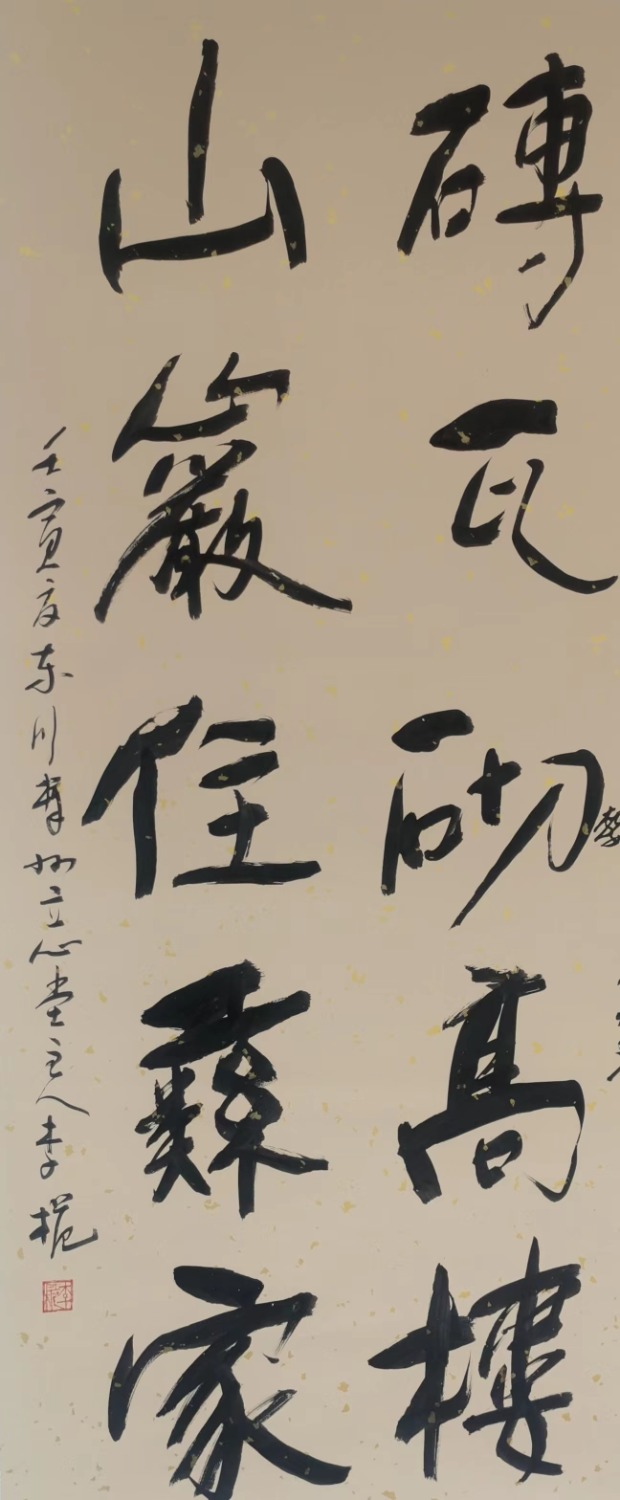 磚瓦砌高樓
山巖住彝家
壬寅夏东川 立心堂主人李